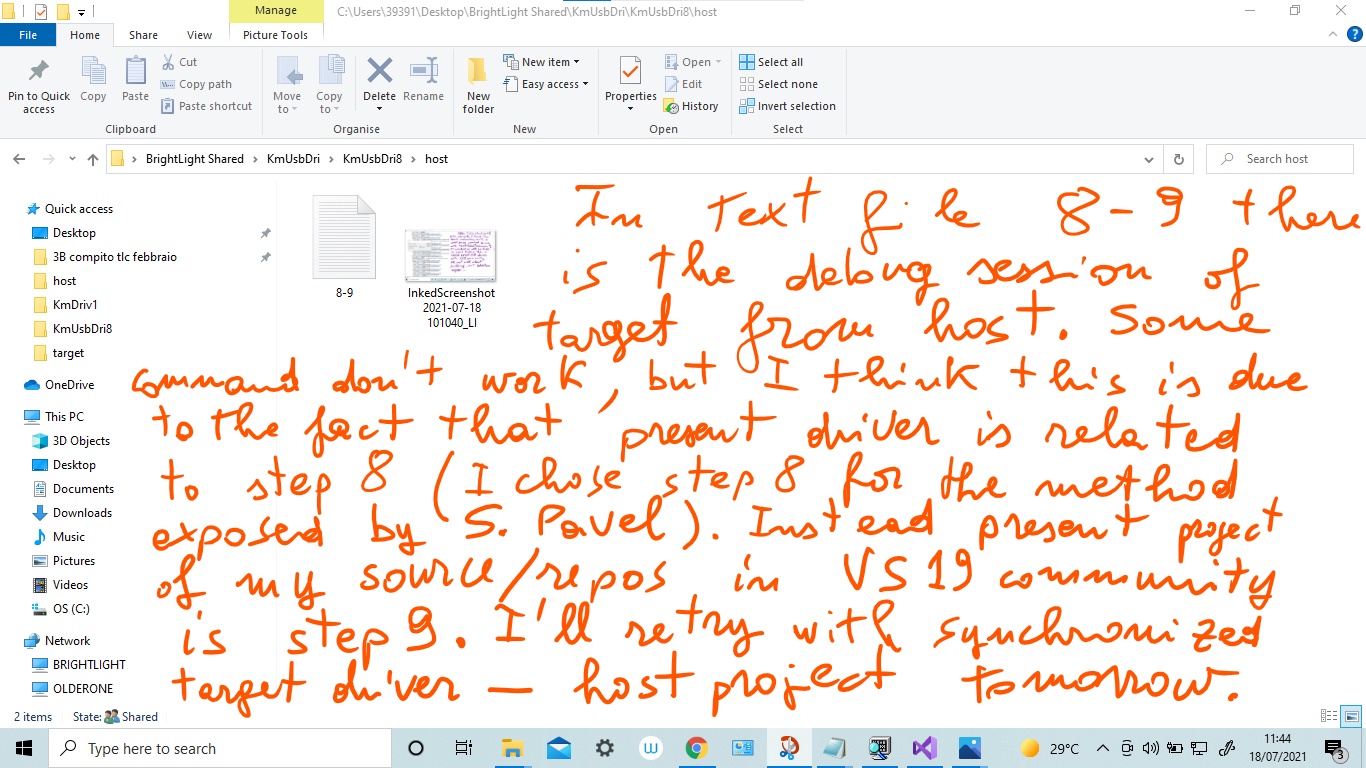 Manage
C:\Users\39391\Desktop\BrightLight Shared\KmUsbDri\KmUsbDri8\host
File
Home
Share
View
Picture Tools
Pin to Quick access
Copy
Paste
Cut
Copy path
Paste shortcut
Clipboard
Move to
Copy to
Delete
Rename
Organise
New folder
New item
Easy access
New
Properties
Open
Edit
History
Open
Select all
Select none
Invert selection
Select
BrightLight Shared > KmUsbDri > KmUsbDri8 > host
Search host
Quick access
Desktop
3B compito tlc febbraio
host
KmDriv1
KmUsbDri8
target
OneDrive
This PC
3D Objects
Desktop
Documents
Downloads
Music
Pictures
Videos
OS (C:)
Network
BRIGHTLIGHT
OLDERONE
8-9
InkedScreenshot
2021-07-18
101040_LI
In text file 8-9 there
is the debug session of
target from host. Some
command don't work, but I think this is due
to the fact that present driver is related
to step 8 (I chose step 8 for the method
exposed by S. Pavel). Instead present project
of my source/repos in VS19 community
is step 9. I'll retry with synchronized
target driver - host project tomorrow.
2 items
State: Shared
Type here to search
29°C
11:44
18/07/2021
3